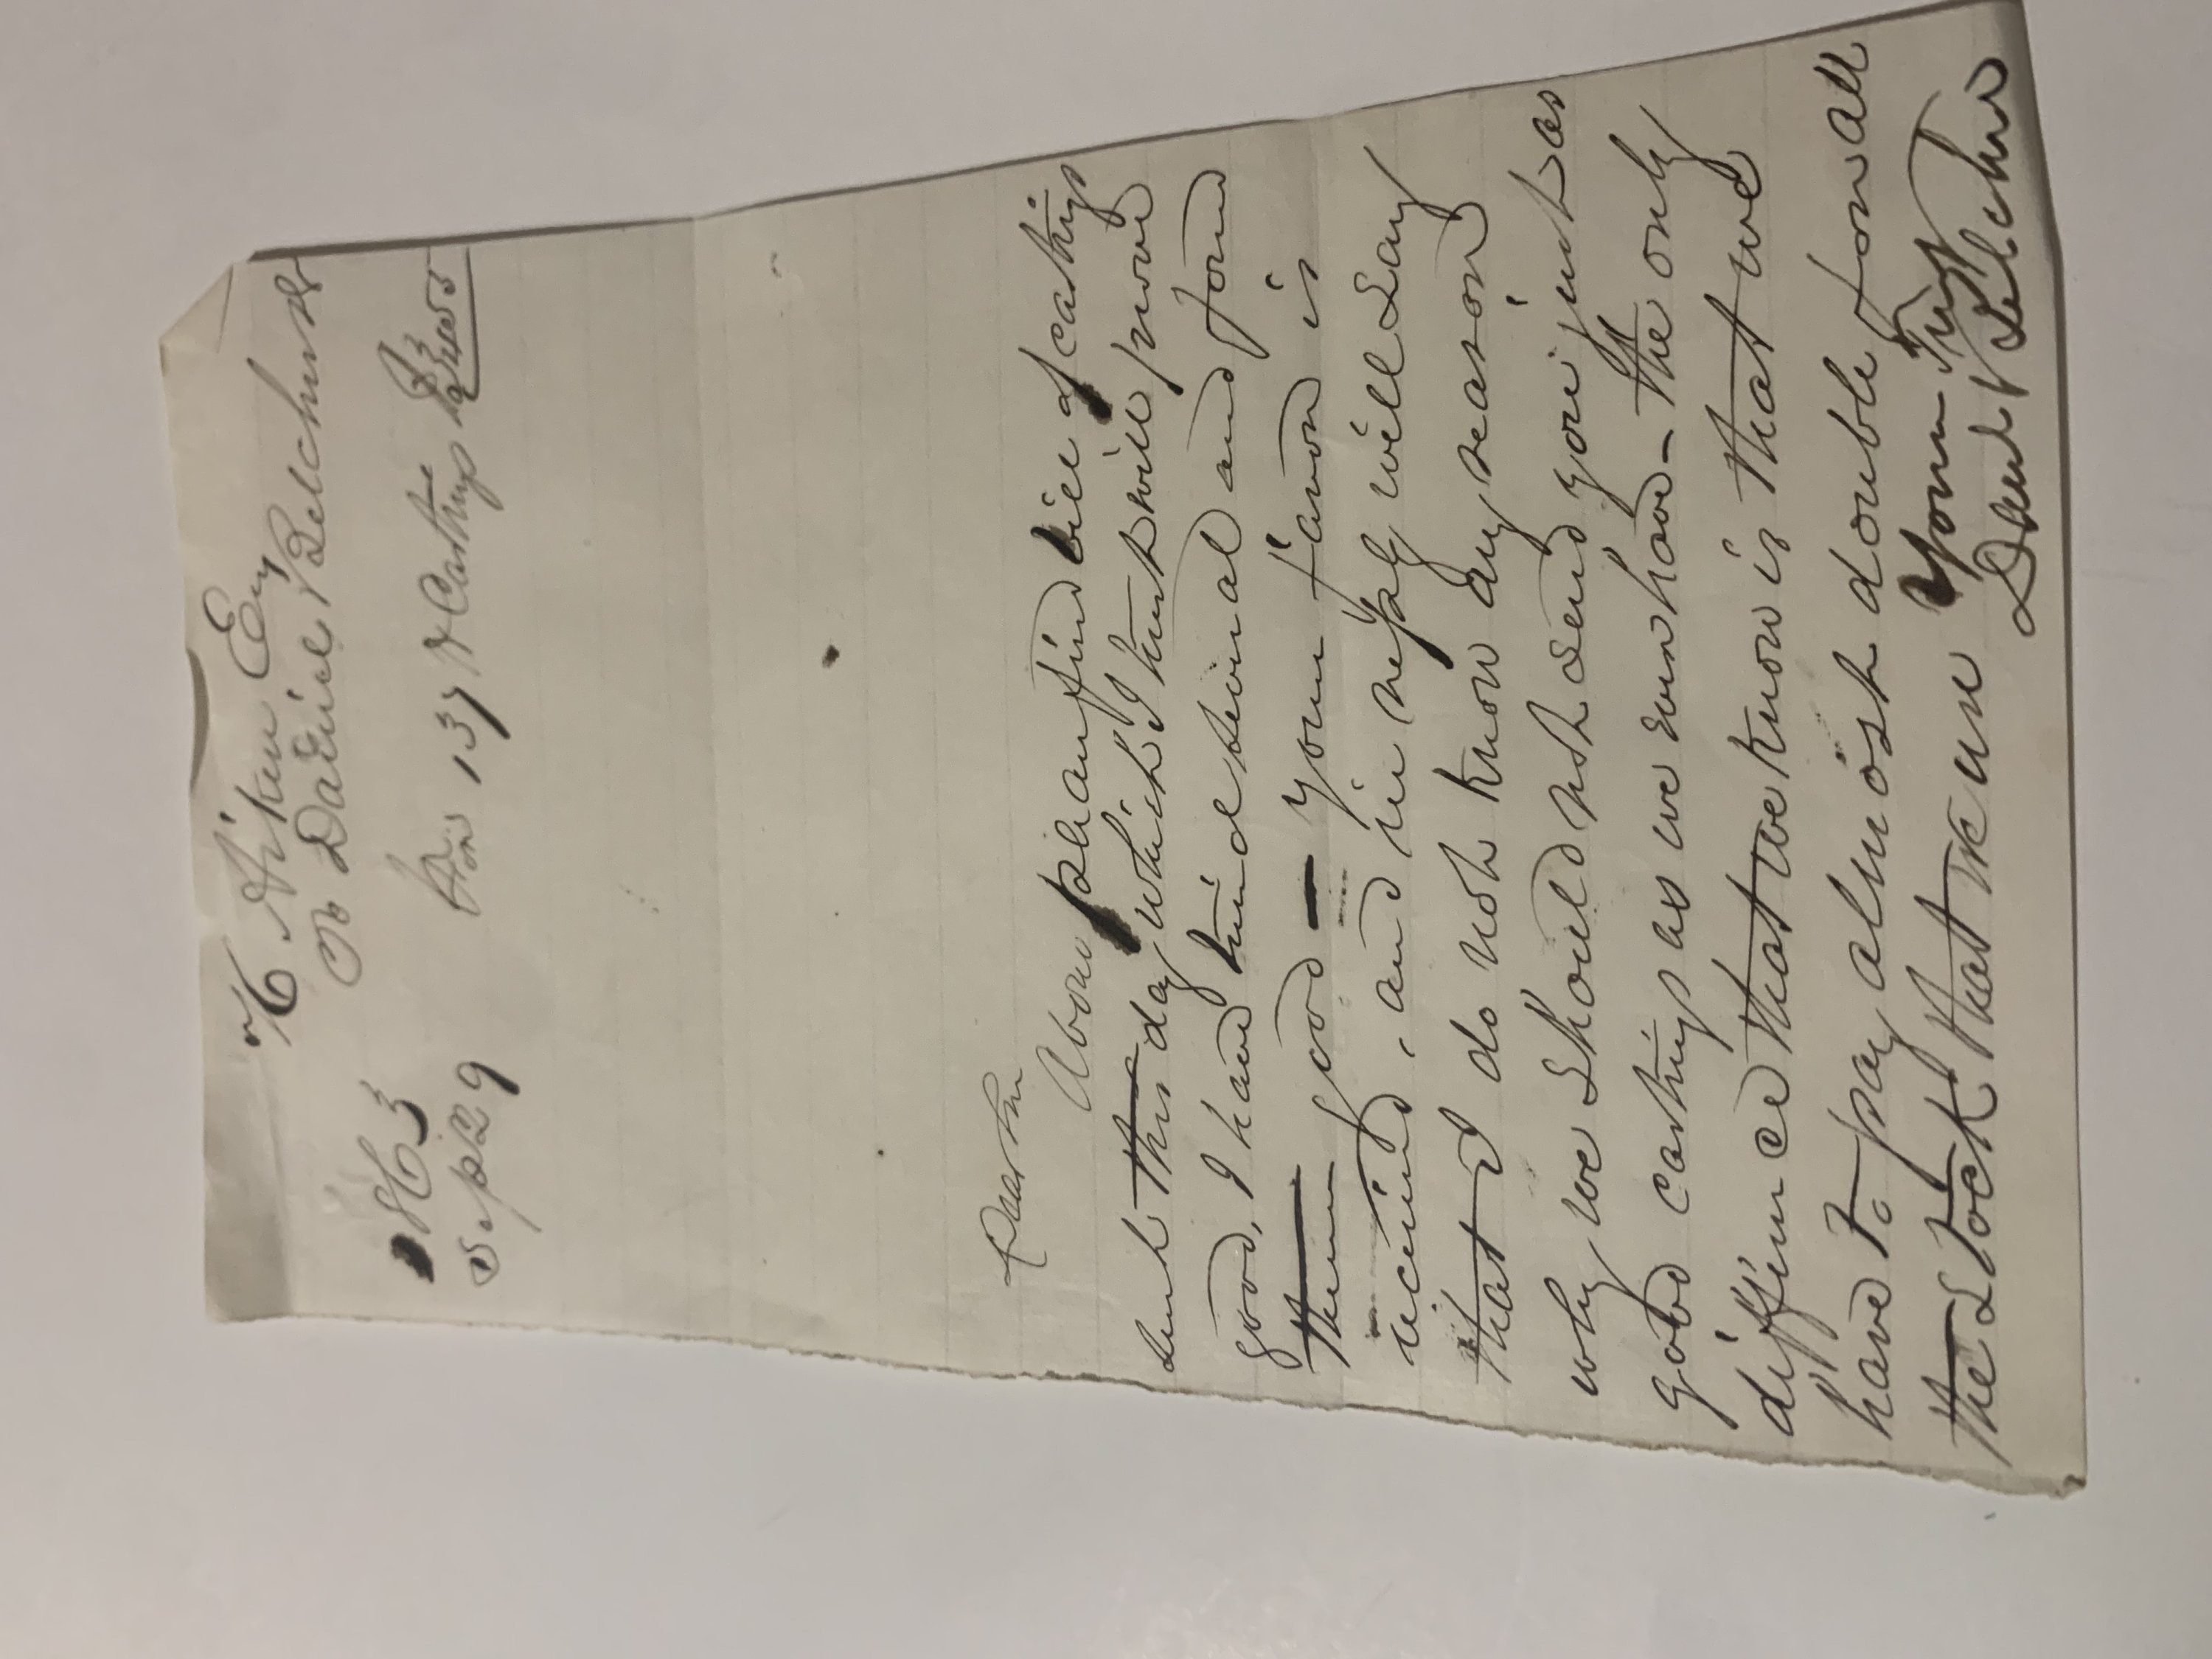 H Aiken Esq
of Daniel Belcher Dr
63
Sept 29 For 137 lb Castings
Dear Sir
Above please find bill of castings
sent this day which I trust will prove
good, I have tried several and found
them good — your favor is
received, and in reply will say
that I do not know any reason
why we should not send you just as
good castings as we ever have — the only
difference that we know is that we
have to pay almost double for all
the Stock that we use Yours Truly
Daniel Belcher